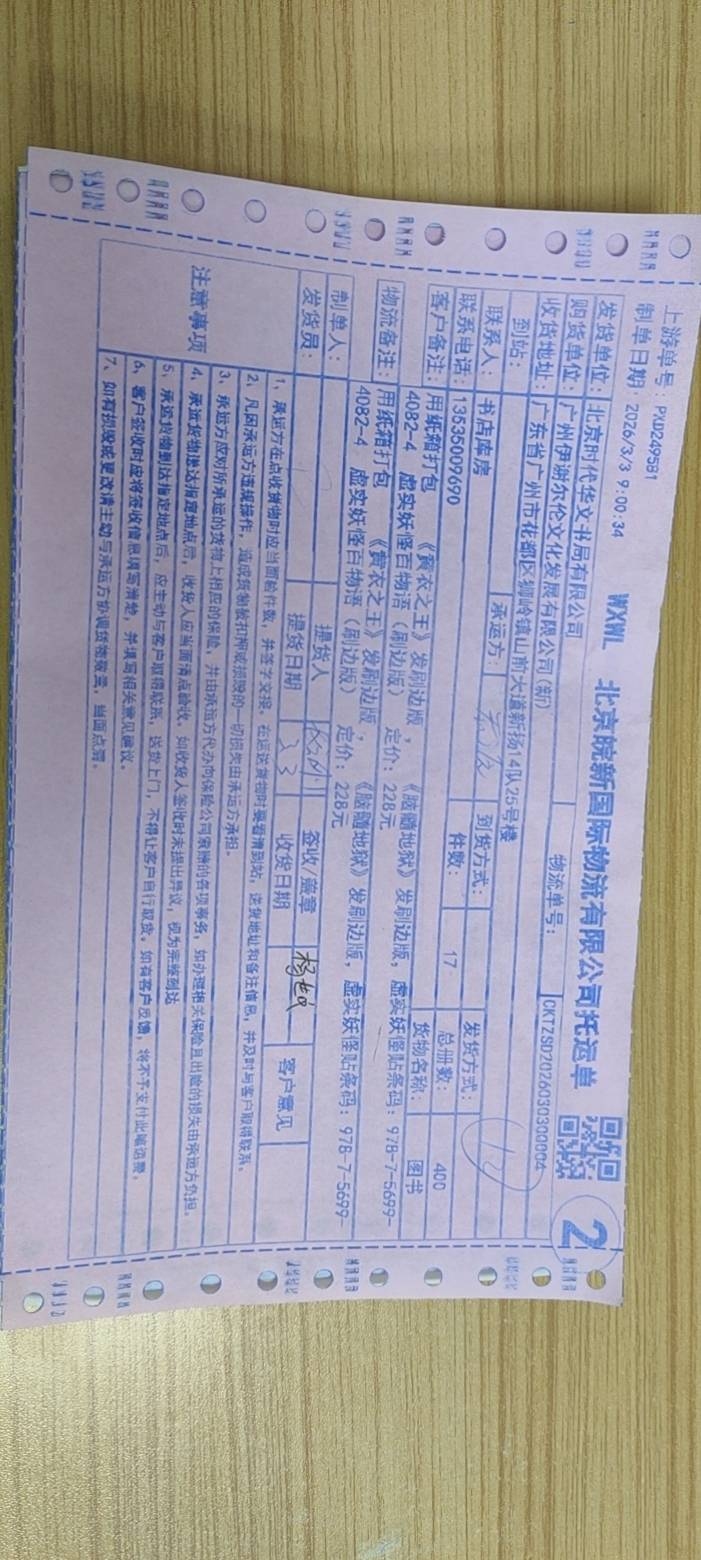 上游单号：PXD249581
制单日期：2026/3/3 9:00:34
WXWL 北京皖新国际物流有限公司托运单
2
发货单位：北京时代华文书局有限公司
物流单号：CKTZSD2026030300004
购货单位：广州伊谢尔伦文化发展有限公司(新)
收货地址：广东省广州市花都区狮岭镇山前大道新扬14队25号楼
到站：
承运方：
到货方式：
发货方式：
联系人：书店库房
件数：17
总册数：400
联系电话：13535009690
货物名称：图书
客户备注：用纸箱打包 《黄衣之王》发刷边版，《脑髓地狱》发刷边版，虚实妖怪贴条码：978-7-5699-
4082-4 虚实妖怪百物语（刷边版） 定价：228元
物流备注：用纸箱打包 《黄衣之王》发刷边版，《脑髓地狱》发刷边版，虚实妖怪贴条码：978-7-5699-
4082-4 虚实妖怪百物语（刷边版） 定价：228元
制单人：
提货人
签收/盖章
客户意见
发货员：
提货日期
收货日期
注意事项
1、承运方在点收货物时应当面验件数，并签字交接。在运送货物时要看清到站，送货地址和备注信息，并及时与客户取得联系。
2、凡因承运方违规操作，造成货物被扣押或损毁的一切损失由承运方承担。
3、承运方应对所承运的货物上相应的保险，并由承运方代办向保险公司索赔的各项事务，如办理相关保险且出险的损失由承运方负担。
4、承运货物抵达指定地点后，收货人应当面清点验收，如收货人签收时未提出异议，视为完整到站
5、承运货物到达指定地点后，应主动与客户取得联系，送货上门，不得让客户自行取货，如有客户反馈，将不予支付此笔运费。
6、客户签收时应将签收信息填写清楚，并填写相关意见建议。
7、如有损毁或更改请主动与承运方协调货物数量，当面点清。